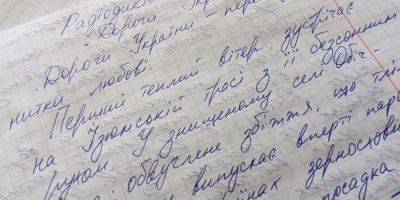 Радіодикт
Дороги Укр
Дороги України – пере
нитки любові.
Перший теплий вітер зустрічає
на Ізюмській трасі з її безсонним
рухом. У знищеному селі
обвуглене збіжжя, що
випускає вперті
зернослови
посадка